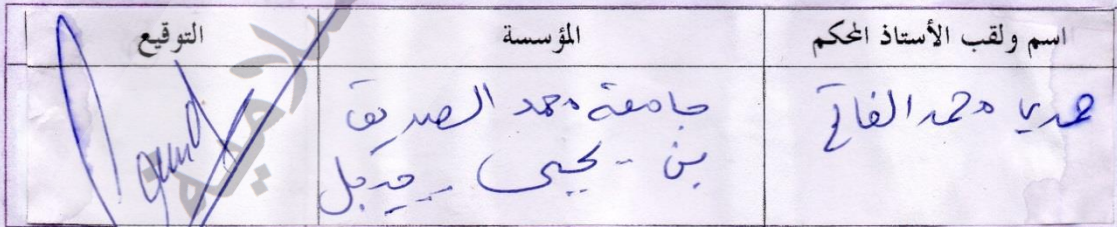 اسم ولقب الأستاذ المحكم	المؤسسة	التوقيع
حمدي محمد الفاتح	جامعة محمد الصديق
بن يحيى - جيجل